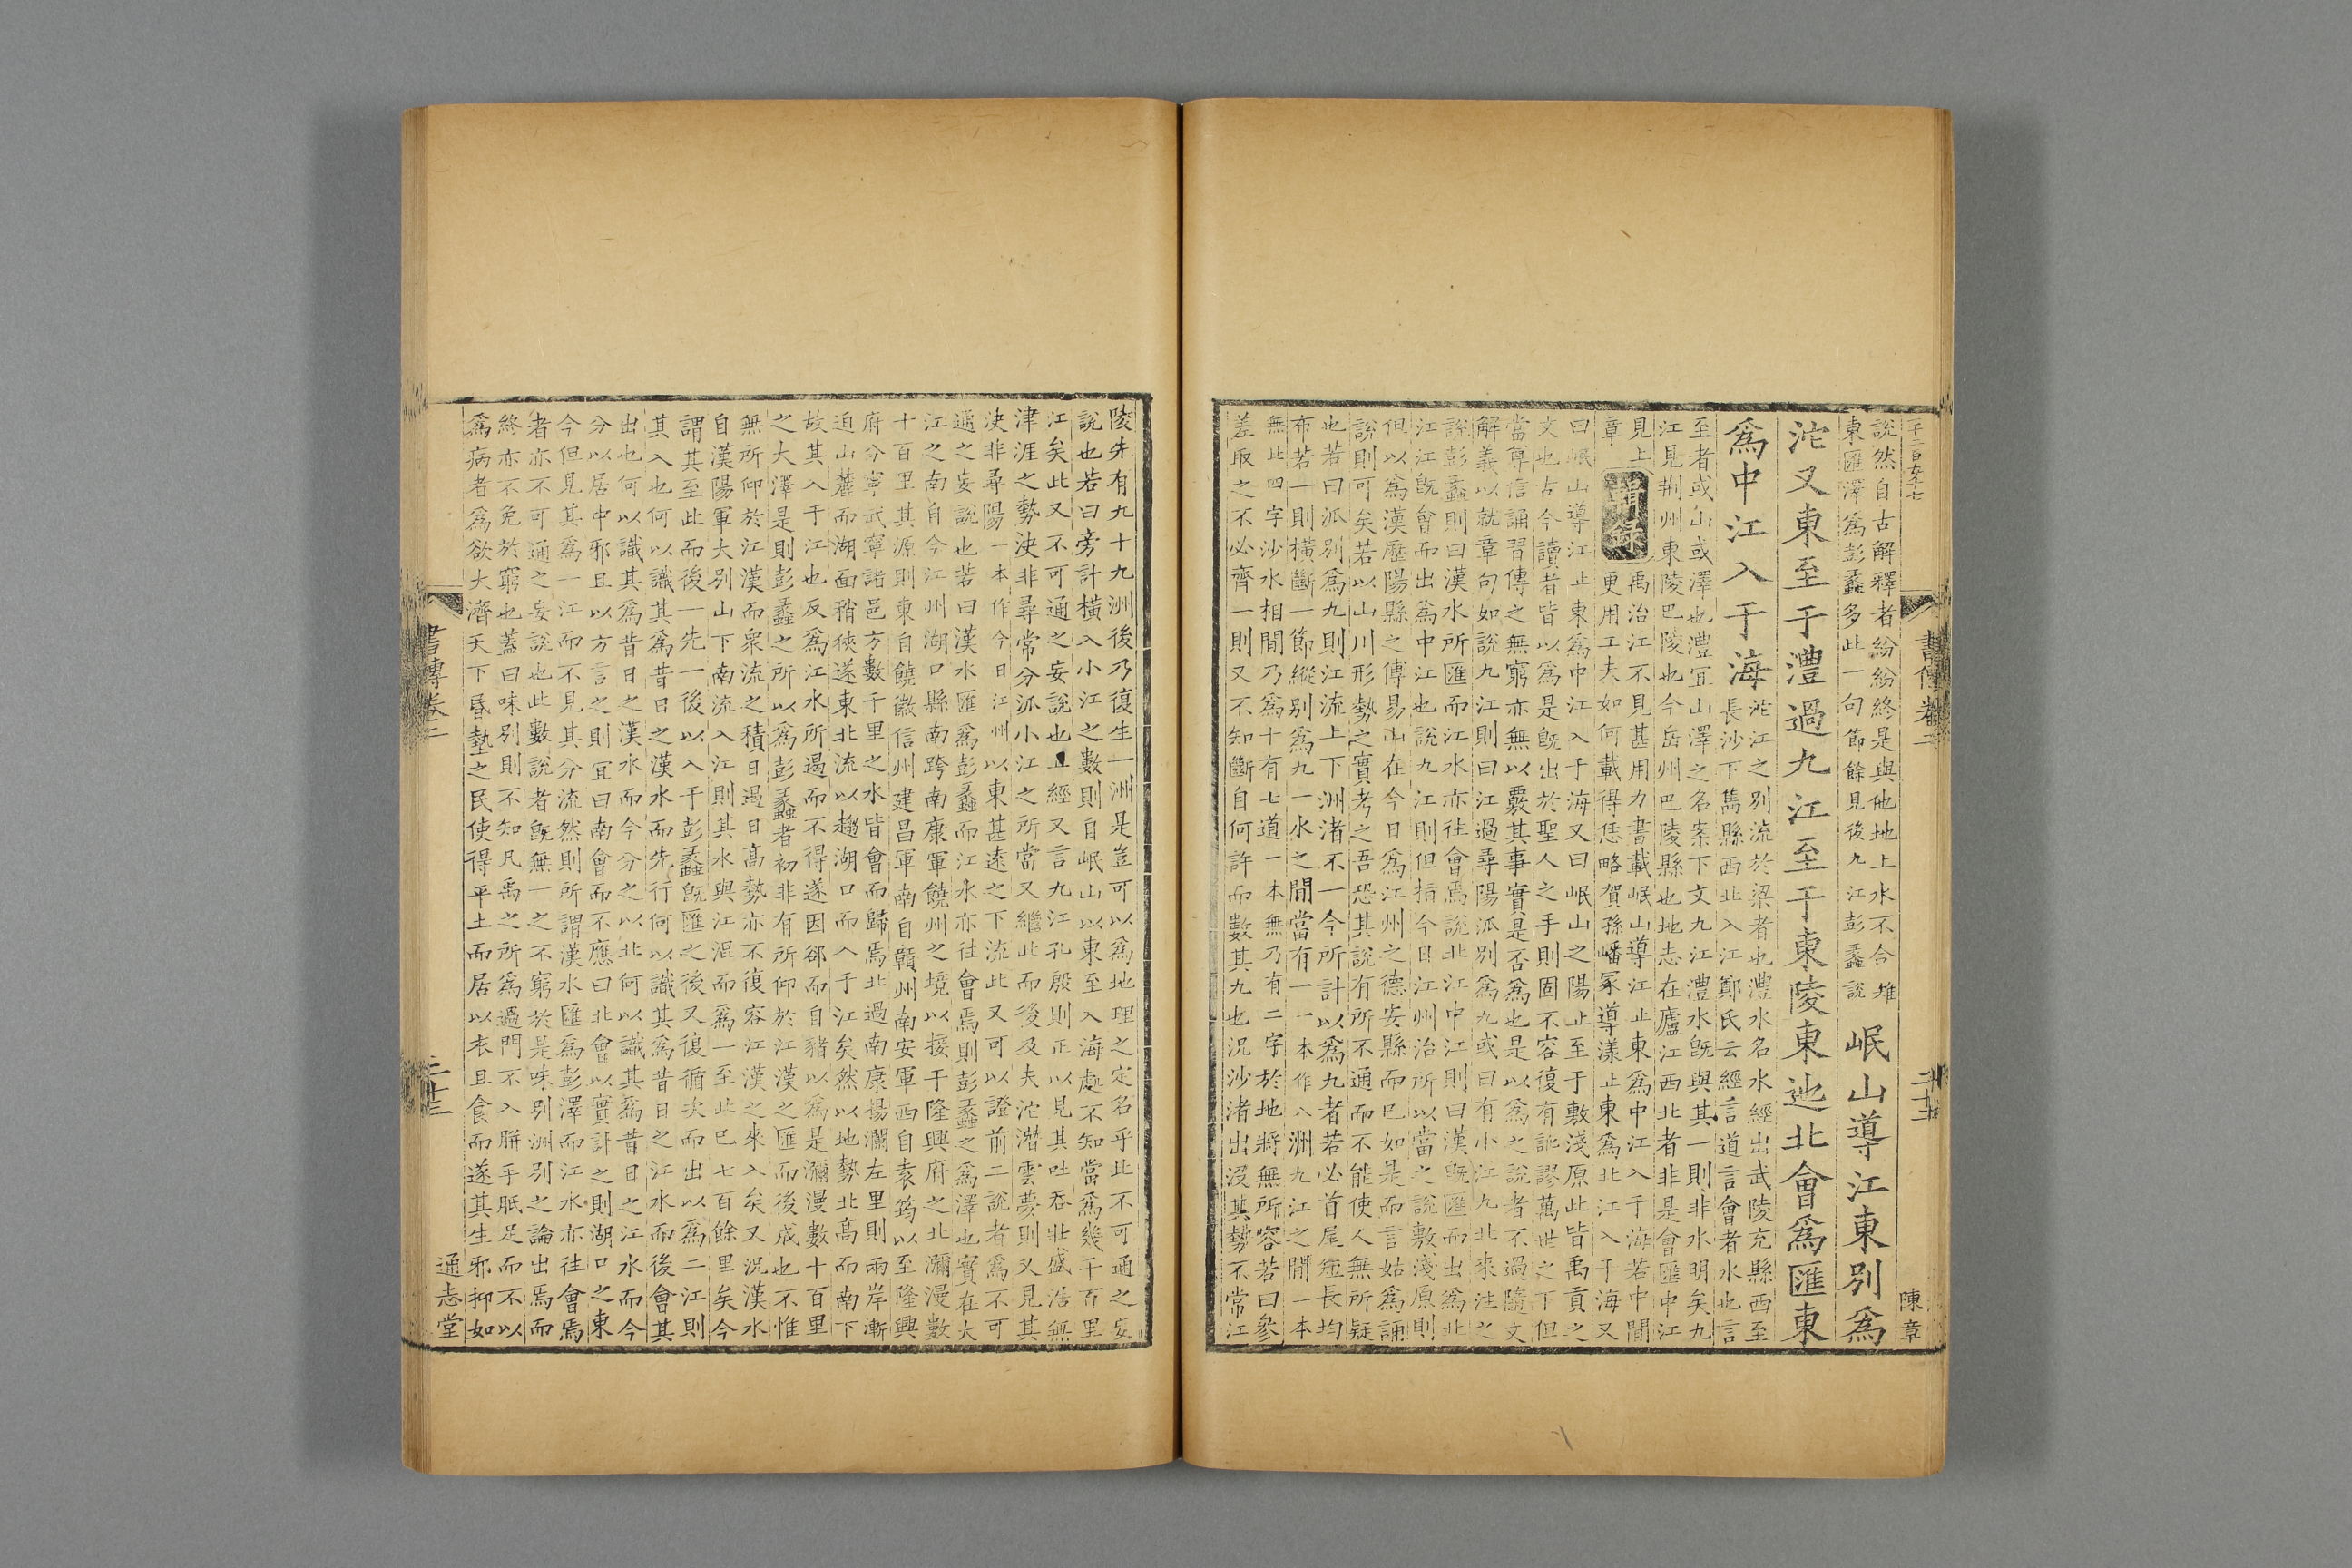 千二百卆七
書傳卷二
二十三
陳章
說然自古解釋者紛紛終是與他地上水不合雉
東匯澤爲彭蠡多此一句節餘見後九江彭蠡說
岷山導江東別爲
沱又東至于澧過九江至于東陵東迆北會爲匯東
爲中江入于海
沱江之別流於梁者也澧水名水經出武陵充縣西至
長沙下雋縣西北入江鄭氏云經言道言會者水也言
至者或山或澤也澧宜山澤之名案下文九江澧水旣與其一則非水明矣九
江見荆州東陵巴陵也今岳州巴陵縣也地志在廬江西北者非是會匯中江
見上
章
輯錄
禹治江不見甚用力書載岷山導江止東爲中江入于海若中間
更用工夫如何載得恁略賀孫嶓冢導漾止東爲北江入于海又
曰岷山導江止東爲中江入于海又曰岷山之陽止至于敷淺原此皆禹貢之
文也古今讀者皆以爲是旣出於聖人之手則固不容復有訛謬萬世之下但
當尊信誦習傳之無窮亦無以覈其事實是否爲也是以爲之說者不過隨文
解義以就章句如說九江則曰江過尋陽派別爲九或曰有小江九北來注之
說彭蠡則曰漢水所匯而江水亦往會焉說北江中江則曰漢旣匯而出爲北
江江旣會而出爲中江也說九江則但指今日江州治所以當之說敷淺原則
但以爲漢歷陽縣之傅易山在今日爲江州之德安縣而已如是而言姑爲誦
說則可矣若以山川形勢之實考之吾恐其說有所不通而不能使人無所疑
也若曰派別爲九則江流上下洲渚不一今所計以爲九者若必首尾短長均
布若一則橫斷一節縱別爲九一水之間當有一一本作八洲九江之間一本
無此四字沙水相間乃爲十有七道一本無乃有二字於地將無所容若曰參
差取之不必齊一則又不知斷自何許而數其九也況沙渚出沒其勢不常江
陵先有九十九洲後乃復生一洲是豈可以爲地理之定名乎此不可通之妄
說也若曰旁計橫入小江之數則自岷山以東至入海處不知當爲幾千百里
江矣此又不可通之妄說也且經又言九江孔殷則正以見其吐吞壯盛浩無
津涯之勢決非尋常分派小江之所當又繼此而後及夫沱潛雲夢則又見其
決非尋陽一本作今日江州以東甚遠之下流此又可以證前二說者爲不可
通之妄說也若曰漢水匯爲彭蠡而江水亦往會焉則彭蠡之爲澤也實在大
江之南自今江州湖口縣南跨南康軍饒州之境以接于隆興府之北瀰漫數
十百里其源則東自饒徽信州建昌軍南自贛州南安軍西自袁筠以至隆興
府分寧武寧諸邑方數千里之水皆會而歸焉北過南康揚瀾左里則兩岸漸
迫山麓而湖面稍狹遂東北流以趨湖口而入于江矣然以地勢北高而南下
故其入于江也反爲江水所過而不得遂因郤而自豬以爲是瀰漫數十百里
之大澤是則彭蠡之所以爲彭蠡者初非有所仰於江漢之匯而後成也不惟
無所仰於江漢而衆流之積日遏日高勢亦不復容江漢之來入矣又況漢水
自漢陽軍大別山下南流入江則其水與江混而爲一至此已七百餘里矣今
謂其至此而後一先一後以入于彭蠡旣匯之後又復循次而出以爲二江則
其入也何以識其爲昔日之漢水而先行何以識其爲昔日之江水而後會其
出也何以識其爲昔日之漢水而今分之以北何以識其爲昔日之江水而今
分以居中邪且以方言之則宜曰南會而不應曰北會以實計之則湖口之東
今但見其爲一江而不見其分流然則所謂漢水匯爲彭澤而江水亦往會焉
者亦不可通之妄說也此數說者旣無一之不窮於是味別洲別之論出焉而
終亦不免於窮也蓋曰味別則不知凡禹之所爲過門不入胼手胝足而不以
爲病者爲欲大濟天下昏墊之民使得平土而居以衣且食而遂其生邪抑如
書傳卷二
二十三
通志堂